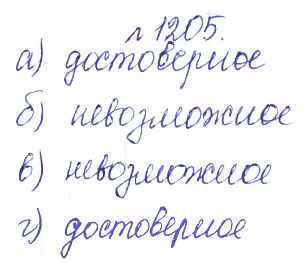 № 1205.
а) достоверное
б) невозможное
в) невозможное
г) достоверное